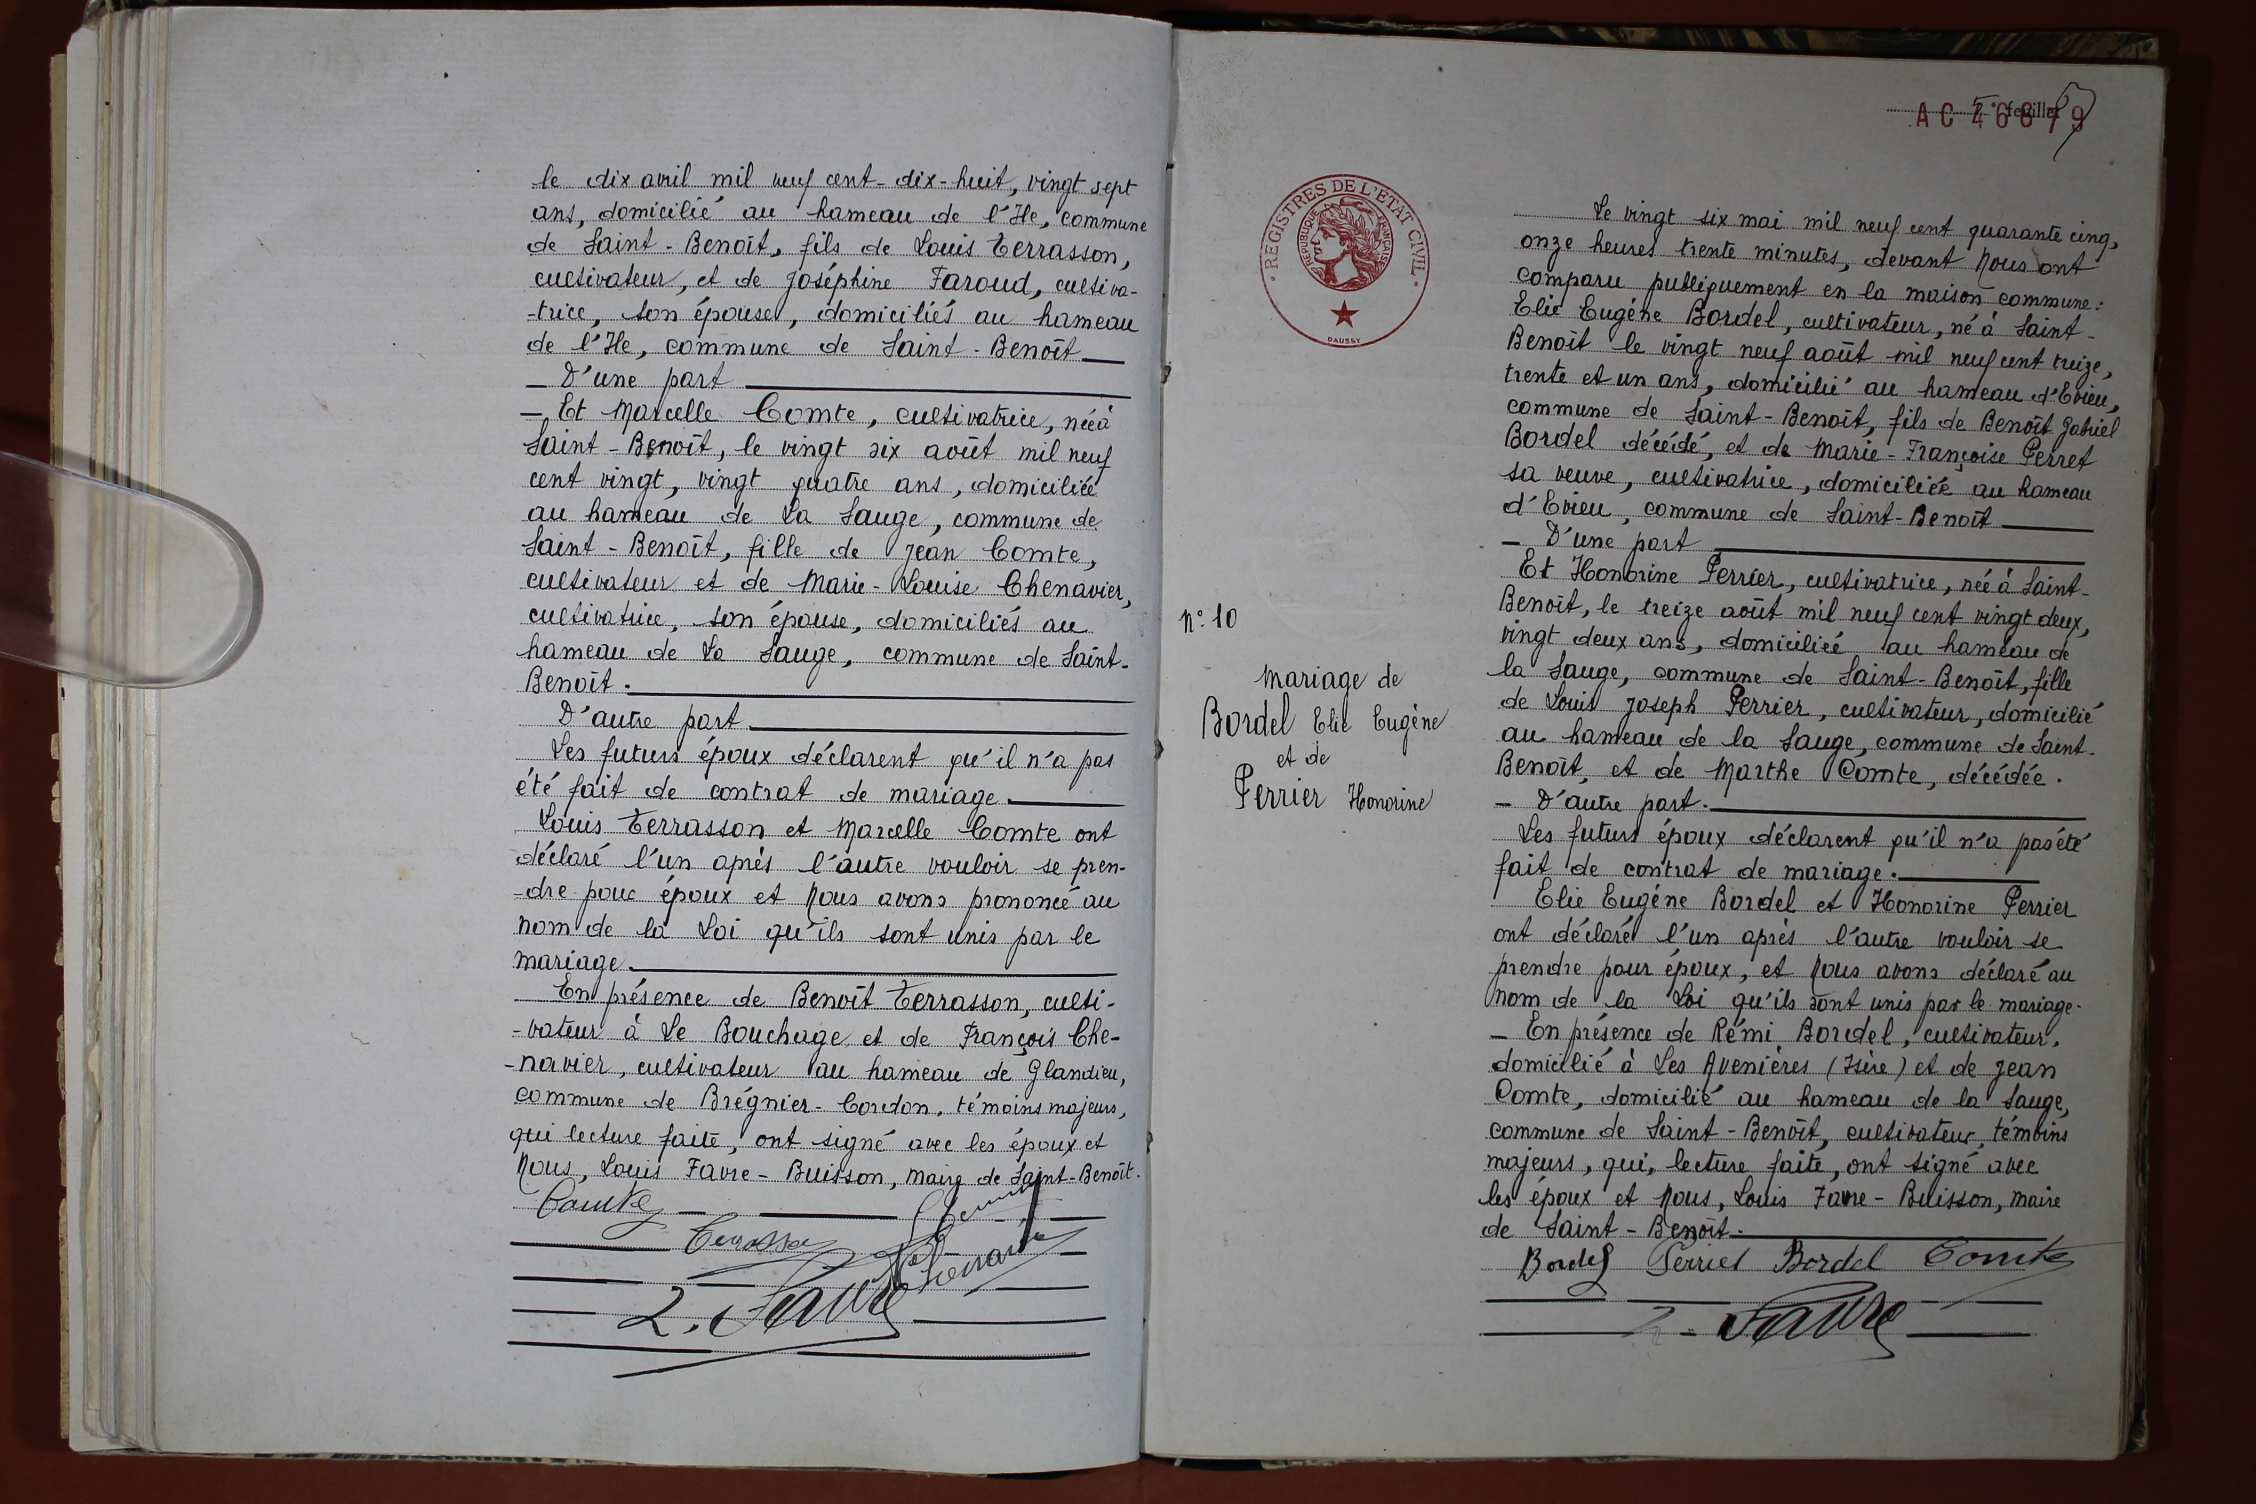 le dix avril mil neuf cent-dix-huit, vingt sept
ans, domicilié au hameau de l'Ile, commune
de Saint-Benoît, fils de Louis Terrasson,
cultivateur, et de Joséphine Faroud, cultiva-
-trice, son épouse, domiciliés au hameau
de l'Ile, commune de Saint-Benoît
— D'une part
— Et Marcelle Comte, cultivatrice, née à
Saint-Benoît, le vingt six août mil neuf
cent vingt, vingt quatre ans, domiciliée
au hameau de La Sauge, commune de
Saint-Benoît, fille de Jean Comte,
cultivateur et de Marie-Louise Chenavier,
cultivatrice, son épouse, domiciliés au
hameau de La Sauge, commune de Saint-
Benoît.
D'autre part
Les futurs époux déclarent qu'il n'a pas
été fait de contrat de mariage.
Louis Terrasson et Marcelle Comte ont
déclaré l'un après l'autre vouloir se pren-
-dre pour époux et Nous avons prononcé au
nom de la Loi qu'ils sont unis par le
mariage.
En présence de Benoît Terrasson, culti-
-vateur à Le Bouchage et de François Che-
-navier, cultivateur au hameau de Glandieu,
commune de Brégnier-Cordon, témoins majeurs,
qui lecture faite, ont signé avec les époux et
Nous, Louis Favre-Buisson, maire de Saint-Benoît.
Comte
L. Favre
5e feuillet
AC 46879
REGISTRES DE L'ETAT CIVIL
REPUBLIQUE FRANÇAISE
DAUSSY
N° 10
Mariage de
Bordel Elie Eugène
et de
Perrier Honorine
Le vingt six mai mil neuf cent quarante cinq,
onze heures trente minutes, devant Nous ont
comparu publiquement en la maison commune:
Elie Eugène Bordel, cultivateur, né à Saint-
Benoît le vingt neuf août mil neuf cent treize,
trente et un ans, domicilié au hameau d'Evieu,
commune de Saint-Benoît, fils de Benoît Gabriel
Bordel décédé, et de Marie-Françoise Perret
sa veuve, cultivatrice, domiciliée au hameau
d'Evieu, commune de Saint-Benoît
— D'une part
Et Honorine Perrier, cultivatrice, née à Saint-
Benoît, le treize août mil neuf cent vingt deux,
vingt deux ans, domiciliée au hameau de
la Sauge, commune de Saint-Benoît, fille
de Louis Joseph Perrier, cultivateur, domicilié
au hameau de la Sauge, commune de Saint-
Benoît, et de Marthe Comte, décédée.
— D'autre part.
Les futurs époux déclarent qu'il n'a pas été
fait de contrat de mariage.
Elie Eugène Bordel et Honorine Perrier
ont déclaré l'un après l'autre vouloir se
prendre pour époux, et Nous avons déclaré au
nom de la Loi qu'ils sont unis par le mariage.
— En présence de Rémi Bordel, cultivateur,
domicilié à Les Avenières (Isère) et de Jean
Comte, domicilié au hameau de la Sauge,
commune de Saint-Benoît, cultivateur, témoins
majeurs, qui, lecture faite, ont signé avec
les époux et Nous, Louis Favre-Buisson, maire
de Saint-Benoît.
Bordel Perrier Bordel Comte
L. Favre